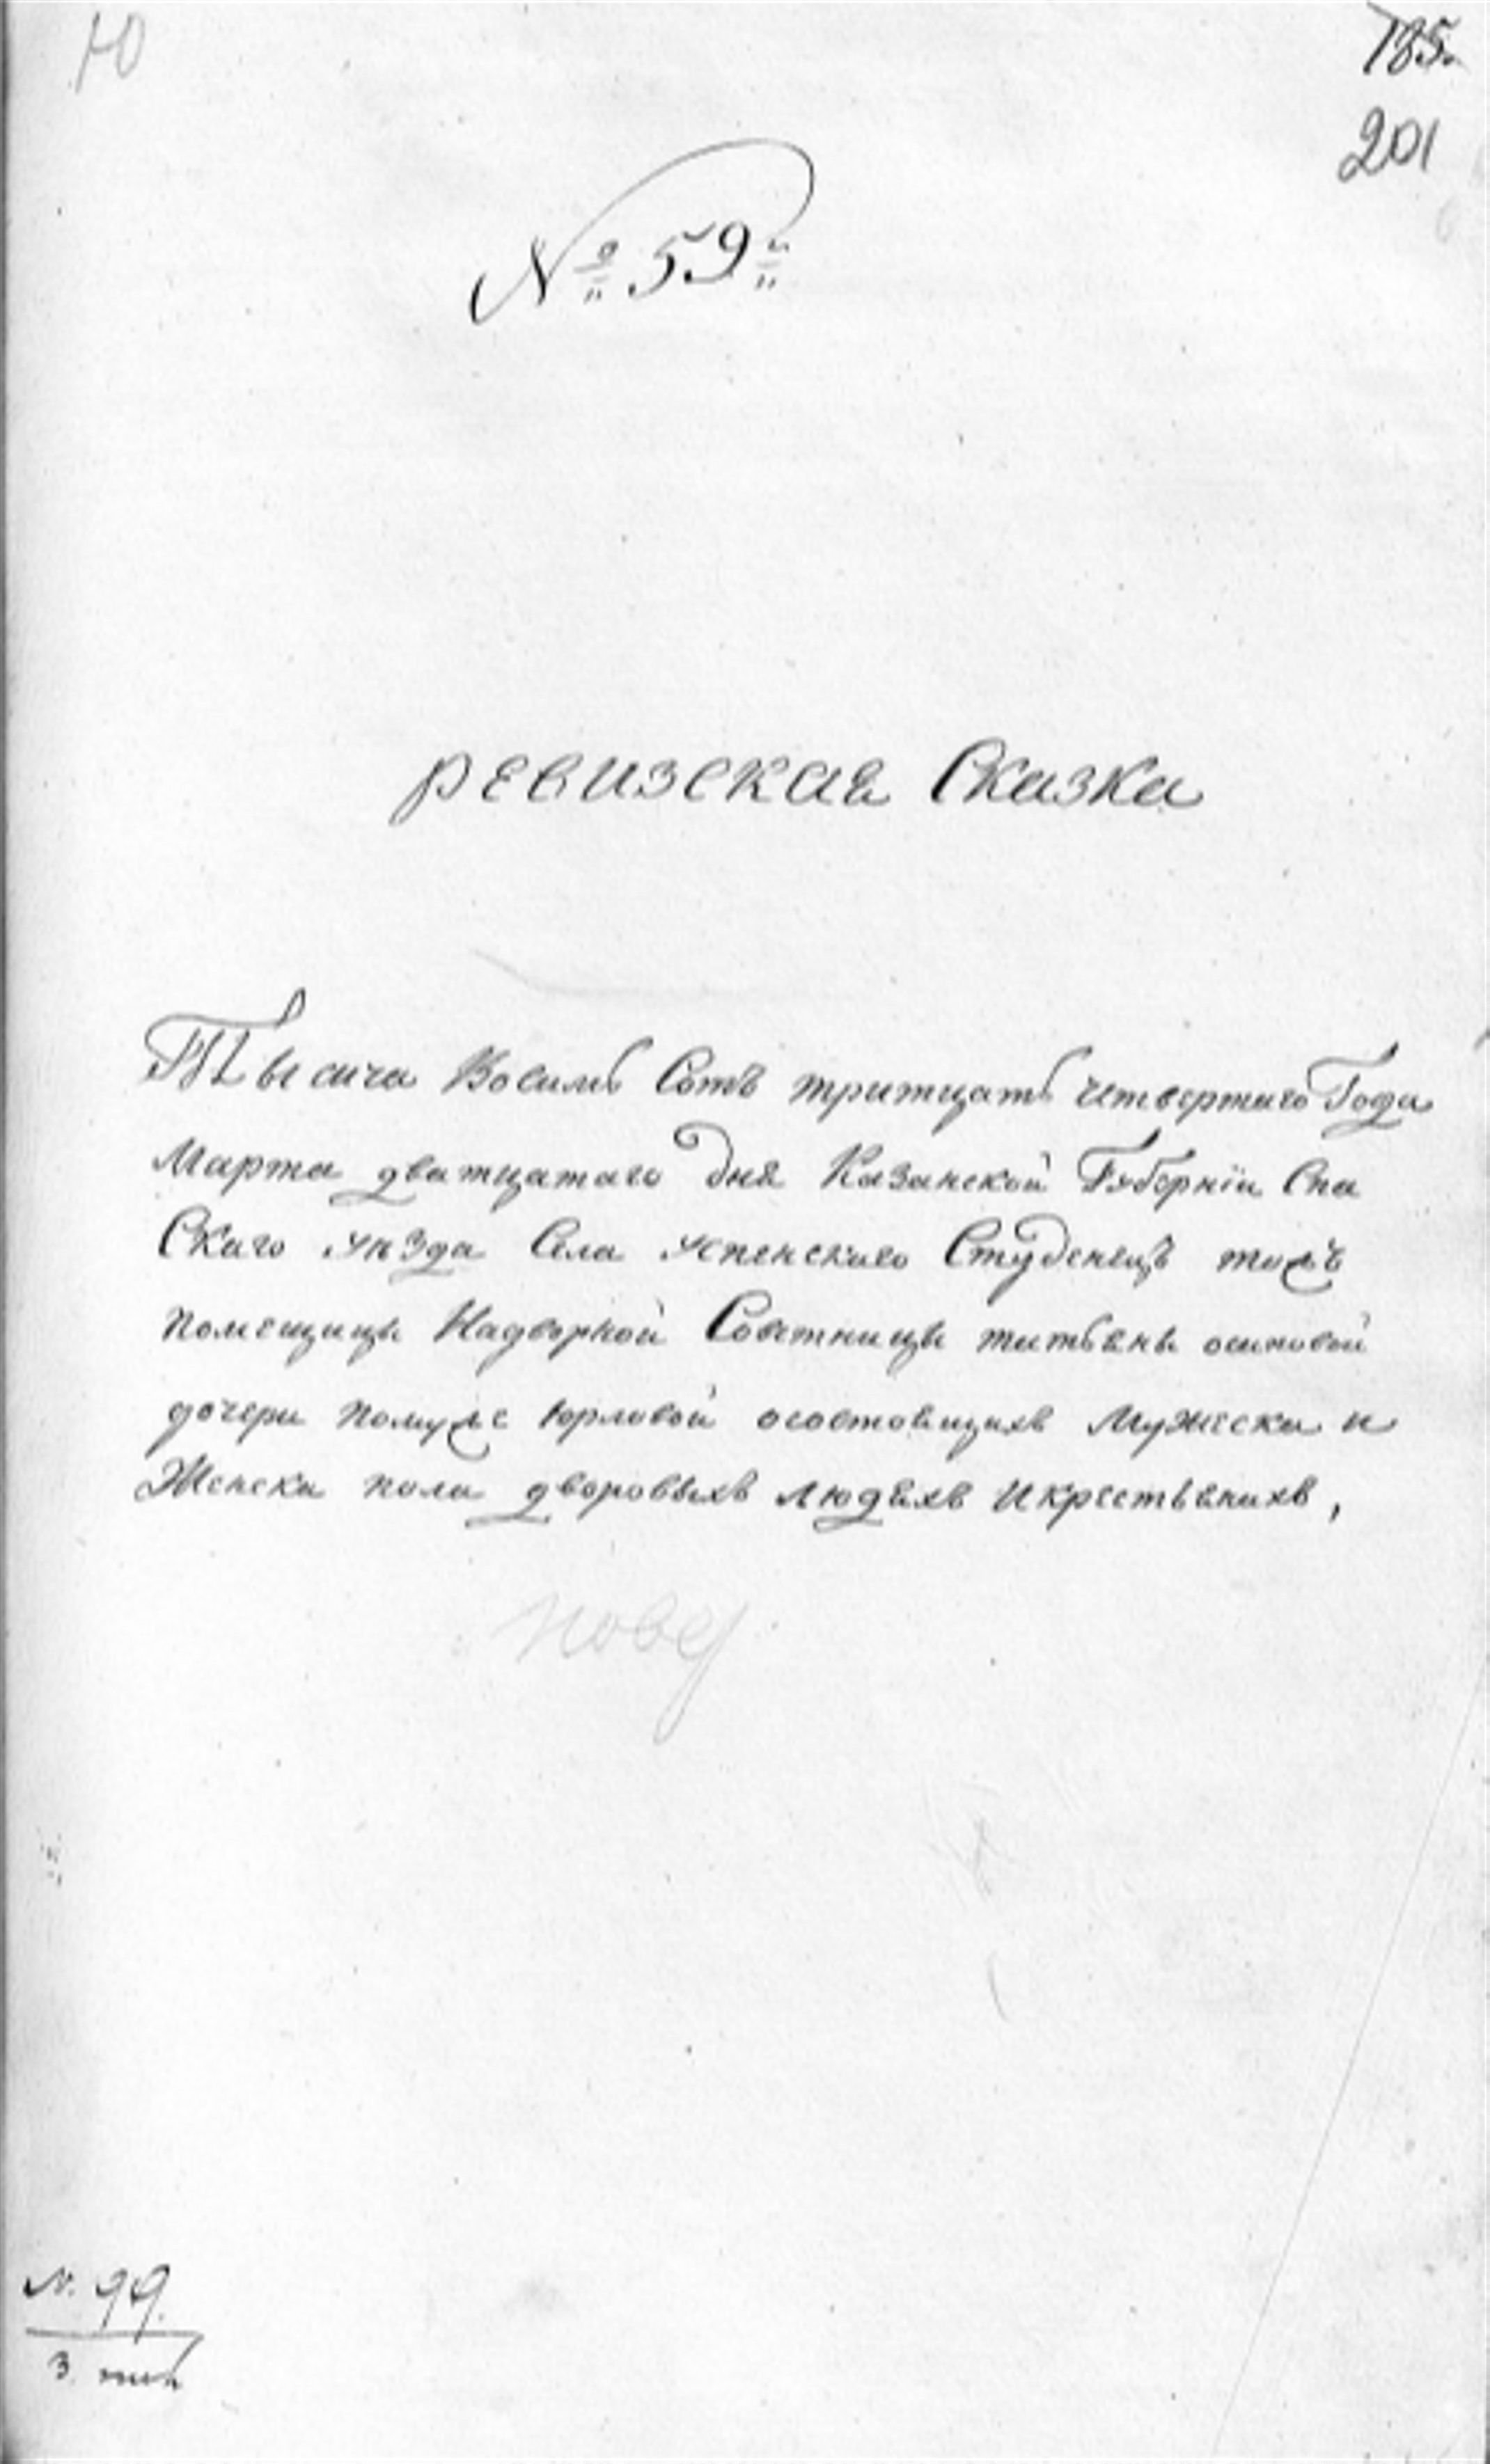 Ю
185.
201
№ 59й
ревизская Сказка
Тысича Восимь Сотъ тритцать четвертаго Года
Марта дватцатаго дня Казанской Губернїи Спа
Скаго уѣзда Села успенскаго Студенецъ тожъ
помещицы Надворной Советницы титьяны осиповой
дочери помужe юрловой осостоящихъ Мужеска и
Женска пола дворовыхъ людяхъ икрестьянахъ,
повер
N. 99.
3.